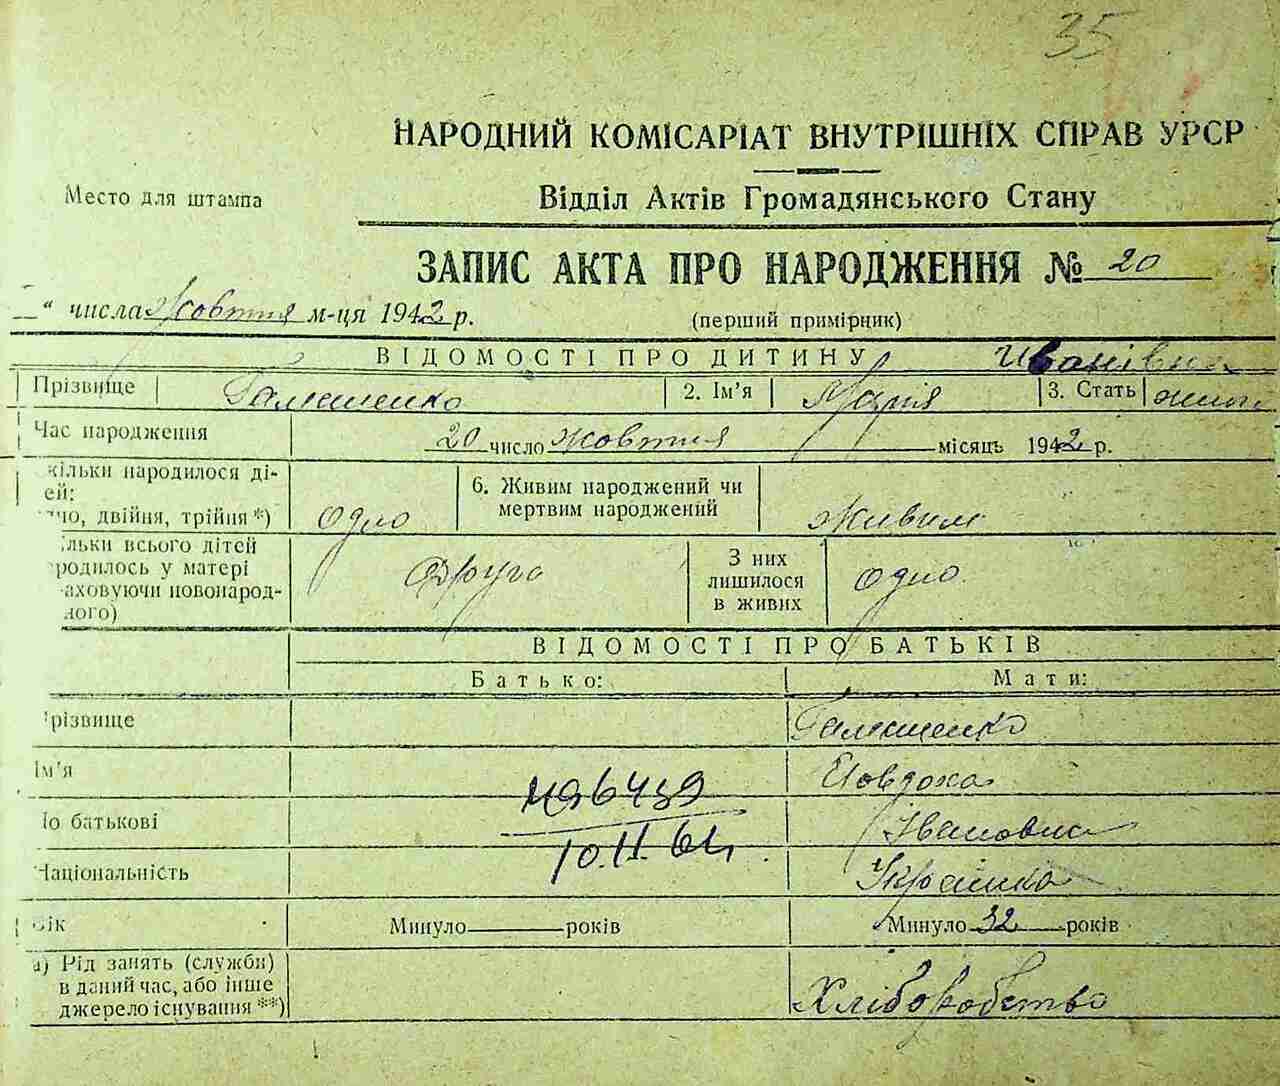 35
НАРОДНИЙ КОМІСАРІАТ ВНУТРІШНІХ СПРАВ УРСР
Место для штампа
Відділ Актів Громадянського Стану
ЗАПИС АКТА ПРО НАРОДЖЕННЯ № 20
" числа Жовтня м-ця 1942 р.
(перший примірник)
ВІДОМОСТІ ПРО ДИТИНУ Иванівна
Прізвище Галушенко 2. Ім'я Марія 3. Стать
Час народження 20 число жовтня місяць 1942 р.
кільки народилося ді-
ей:
но, двійня, трійня *) одно 6. Живим народжений чи мертвим народжений живим
ільки всього дітей
родилось у матері
аховуючи новонарод-
ного) Друге З них лишилося в живих одно
ВІДОМОСТІ ПРО БАТЬКІВ
Батько: Мати:
різвище Галушенко
Ім'я Явдоха
о батькові Івановна
Національність Українка
Вік Минуло років Минуло 32 років
10.II.64
а) Рід занять (служби)
в даний час, або інше
джерело існування **) Хліборобство